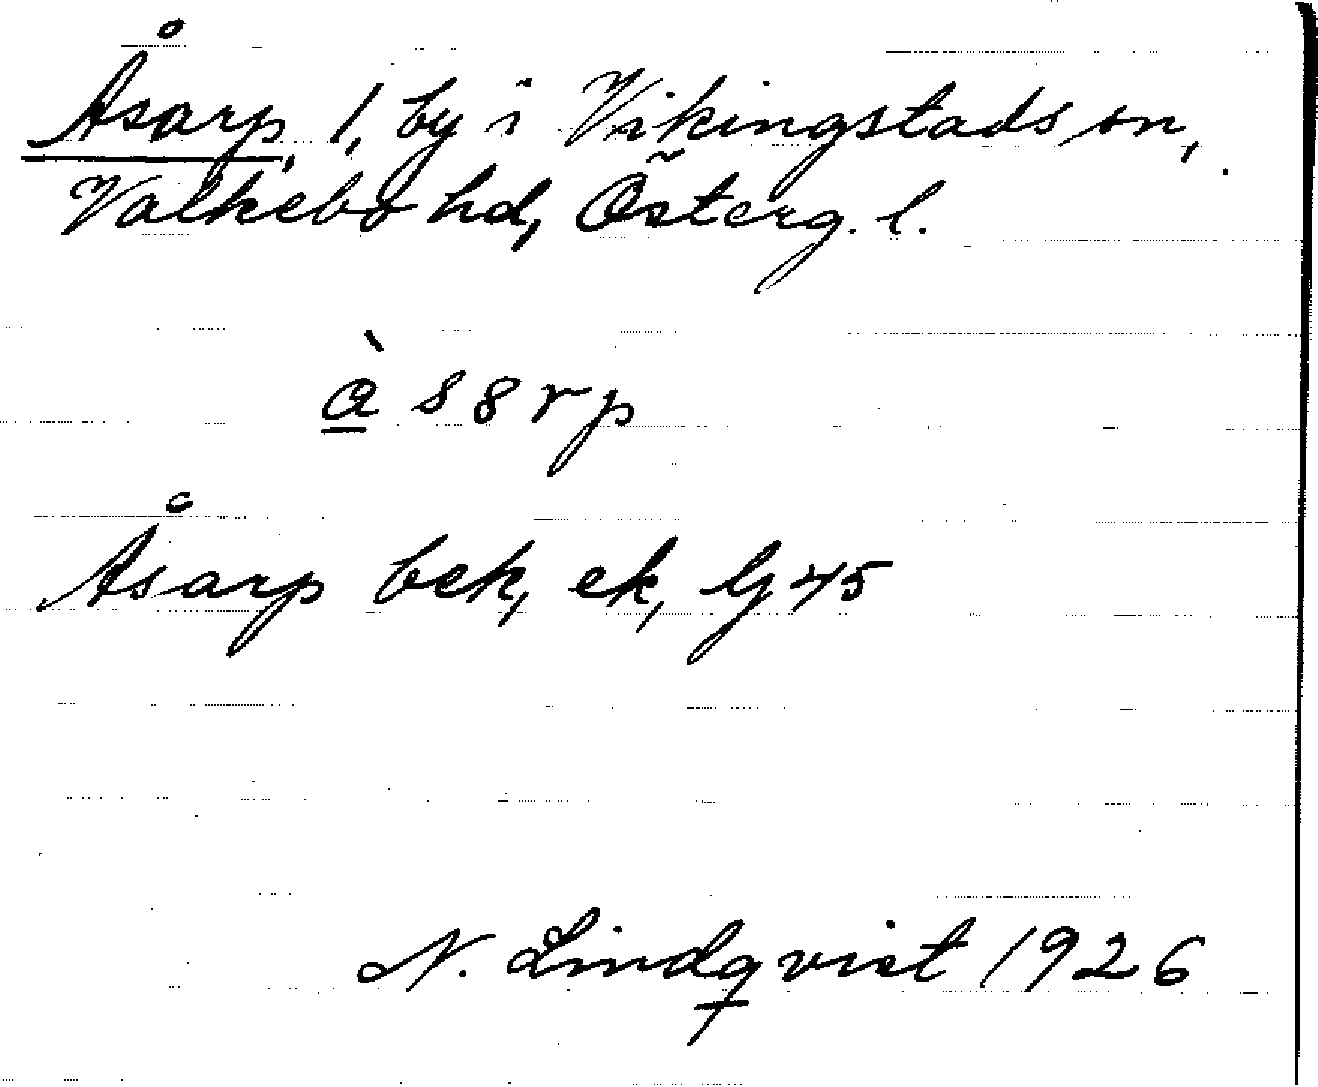 Åsarp, 1, by i Vikingstads sn,
Valkebo hd, Österg. l.
å̀ s 8 r p
Åsarp bek, ek, Gj 45
N. Lindqvist 1926